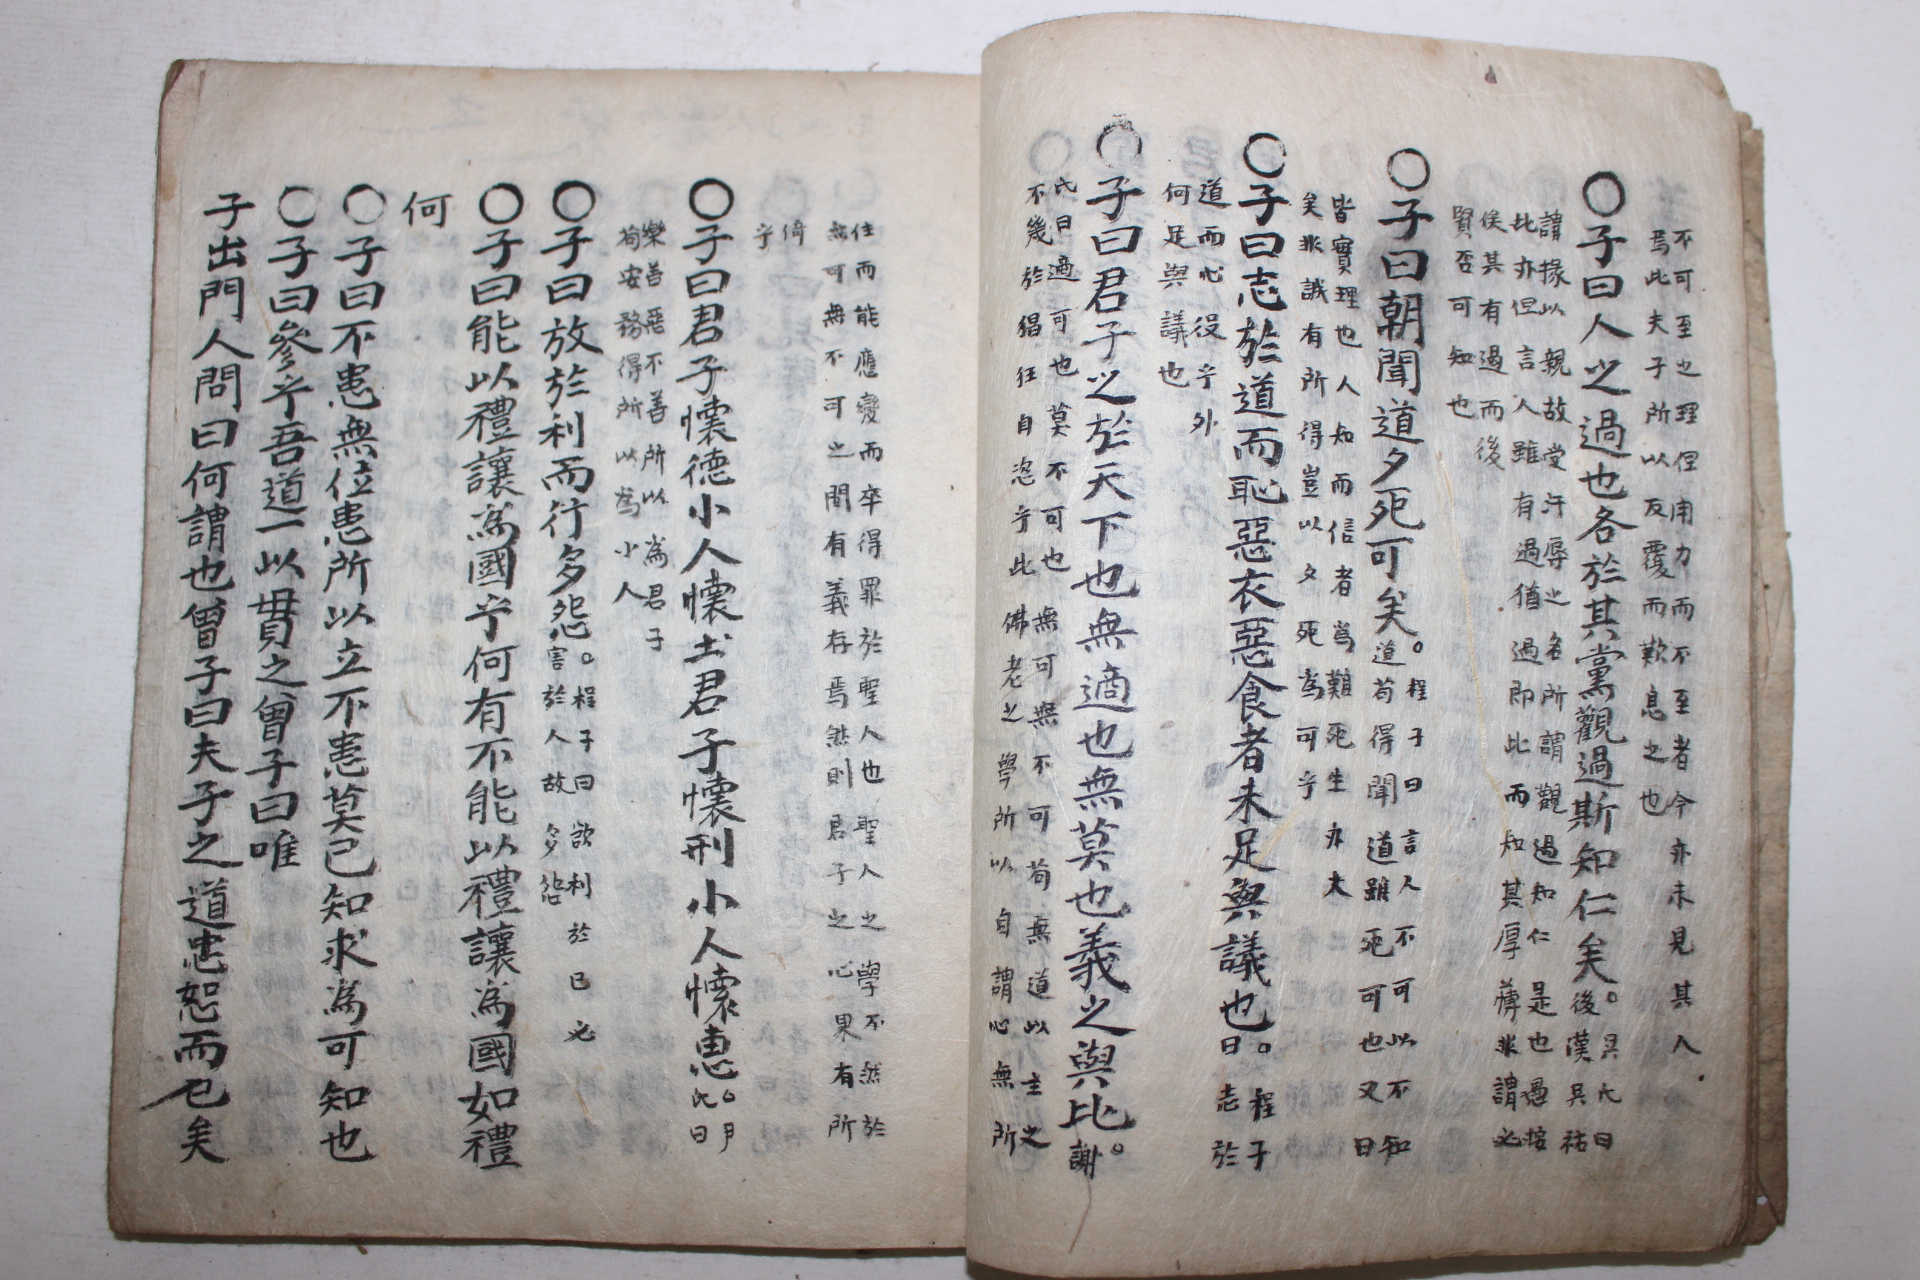 不可至之理但用力而不至者今亦未見其人
焉此夫子所以反覆而歎息之也
○子曰人之過也各於其黨觀過斯知仁矣。吳氏曰
後漢吳祐
謂掾以親故受汚辱之名所謂觀過知仁是也愚按
此亦但言人雖有過猶過即此而知其厚薄非謂必
俟其有過而後
賢否可知也
○子曰朝聞道夕死可矣。程子曰言人不可以不知
道苟得聞道雖死可也又曰
皆實理也人知而信者爲難死生亦大
矣非誠有所得豈以夕死爲可乎
○子曰志於道而恥惡衣惡食者未足與議也。程子
曰志於
道而心役乎外
何足與議也
○子曰君子之於天下也無適也無莫也義之與比。
謝
氏曰適可也莫不可也無可無不可苟無道以主之
不幾於猖狂自恣乎此佛老之學所以自謂心無所
住而能應變而卒得罪於聖人也聖人之學不然於
無可無不可之間有義存焉然則君子之心果有所
倚
乎
○子曰君子懷德小人懷土君子懷刑小人懷惠。尹
氏曰
樂善惡不善所以爲君子
苟安務得所以爲小人
○子曰放於利而行多怨。程子曰欲利於已必
害於人故多怨
○子曰能以禮讓爲國乎何有不能以禮讓爲國如禮
何
○子曰不患無位患所以立不患莫已知求爲可知也
○子曰參乎吾道一以貫之曾子曰唯
子出門人問曰何謂也曾子曰夫子之道忠恕而已矣